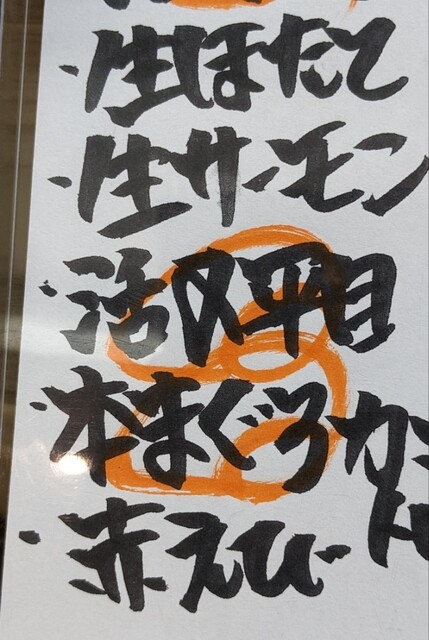 ・生ほたて
・生サーモン
・活〆平目
・本まぐろ
・赤えび